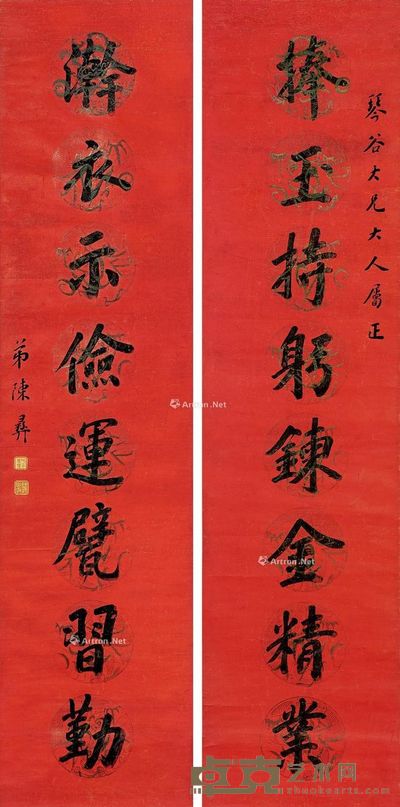 琴谷大兄大人属正
捧玉持躬鍊金精業
澣衣示儉運甓習勤
弟陳彝
Artron.Net
Artron.Net
Artron.Net
Artron.Net
卓克艺术网